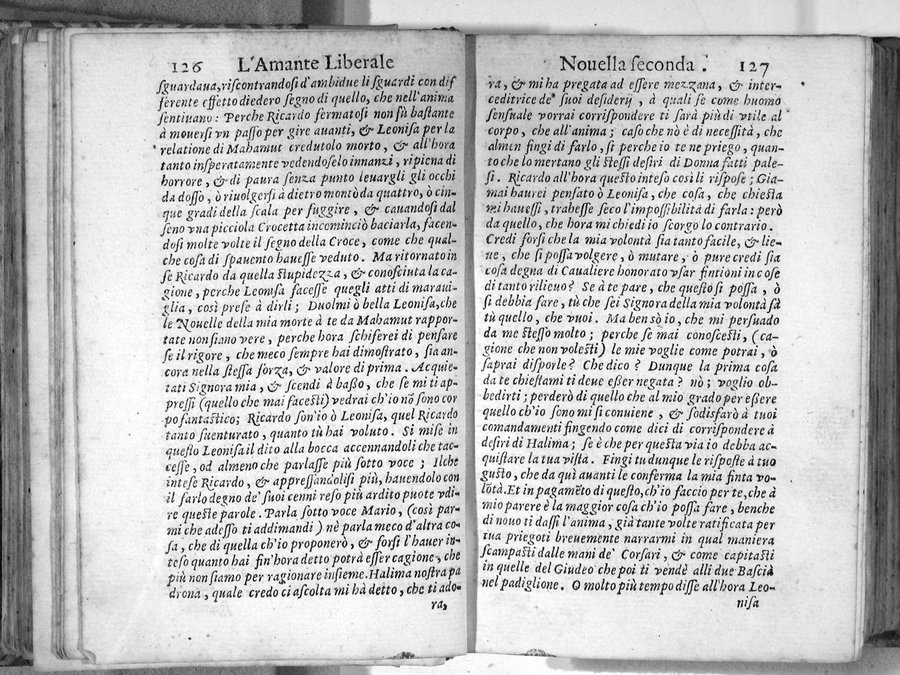 126 L'Amante Liberale
sguardaua, riscontrandosi d'ambidue li sguardi con dif
ferente effetto diedero segno di quello, che nell'anima
sentiuano: Perche Ricardo fermatosi non fù bastante
à mouersi vn passo per gire auanti, & Leonisa per la
relatione di Mahamut credutolo morto, & all'hora
tanto insperatamente vedendoselo innanzi, ripiena di
horrore, & di paura senza punto leuargli gli occhi
da dosso, ò riuolgersi à dietro montò da quattro, ò cin-
que gradi della scala per fuggire, & cauandosi dal
seno vna picciola Crocetta incominciò baciarla, facen-
dosi molte volte il segno della Croce, come che qual-
che cosa di spauento hauesse veduto. Ma ritornato in
se Ricardo da quella stupidezza, & conosciuta la ca-
gione, perche Leonisa facesse quegli atti di maraui-
glia, così prese à dirli; Duolmi ò bella Leonisa, che
le Nouelle della mia morte à te da Mahamut rappor-
tate non siano vere, perche hora schiferei di pensare
se il rigore, che meco sempre hai dimostrato, sia an-
cora nella stessa forza, & valore di prima. Acquie-
tati Signora mia, & scendi à basso, che se mi ti ap-
pressi (quello che mai facesti) vedrai ch'io nõ sono cor
po fantastico; Ricardo son'io ò Leonisa, quel Ricardo
tanto suenturato, quanto tù hai voluto. Si mise in
questo Leonisa il dito alla bocca accennandoli che tac-
cesse, od almeno che parlasse più sotto voce; Ilche
intese Ricardo, & appressandolisi più, hauendolo con
il farlo degno de' suoi cenni reso più ardito puote vdi-
re queste parole. Parla sotto voce Mario, (così par-
mi che adesso ti addimandi) nè parla meco d'altra co-
sa, che di quella ch'io proponerò, & forsi l'hauer in-
teso quanto hai fin'hora detto potrà esser cagione, che
più non siamo per ragionare insieme. Halima nostra pa
drona, quale credo ci ascolta mi hà detto, che ti ado-
ra,
Nouella seconda. 127
ra, & mi ha pregata ad essere mezzana, & inter-
ceditrice de' suoi desiderij, à quali se come huomo
sensuale vorrai corrispondere ti sarà più di vtile al
corpo, che all'anima; caso che nò è di necessità, che
almen fingi di farlo, si perche io te ne priego, quan-
to che lo mertano gli stessi desiri di Donna fatti pale-
si. Ricardo all'hora questo inteso così li rispose; Gia-
mai haurei pensato ò Leonisa, che cosa, che chiesta
mi hauessi, trahesse seco l'impossibilità di farla: però
da quello, che hora mi chiedi io scorgo lo contrario.
Credi forsi che la mia volontà sia tanto facile, & lie-
ue, che si possa volgere, ò mutare, ò pure credi sia
cosa degna di Caualiere honorato vsar fintioni in cose
di tanto rilieuo? Se à te pare, che questo si possa, ò
si debbia fare, tù che sei Signora della mia volontà fà
tù quello, che vuoi. Ma ben sò io, che mi persuado
da me stesso molto; perche se mai conoscesti, (ca-
gione che non volesti) le mie voglie come potrai, ò
saprai disporle? Che dico? Dunque la prima cosa
da te chiestami ti deue esser negata? nò; voglio ob-
bedirti; perderò di quello che al mio grado per essere
quello ch'io sono mi si conuiene, & sodisfarò à tuoi
comandamenti fingendo come dici di corrispondere à
desiri di Halima; se è che per questa via io debba ac-
quistare la tua vista. Fingi tu dunque le risposte à tuo
gusto, che da quì auanti le conferma la mia finta vo-
lõtà. Et in pagamẽto di questo, ch'io faccio per te, che à
mio parere è la maggior cosa ch'io possa fare, benche
di nouo ti dassi l'anima, già tante volte ratificata per
tua priegoti breuemente narrarmi in qual maniera
scampasti dalle mani de' Corsari, & come capitasti
in quelle del Giudeo che poi ti vendè alli due Bascià
nel padiglione. O molto più tempo disse all'hora Leo-
nisa